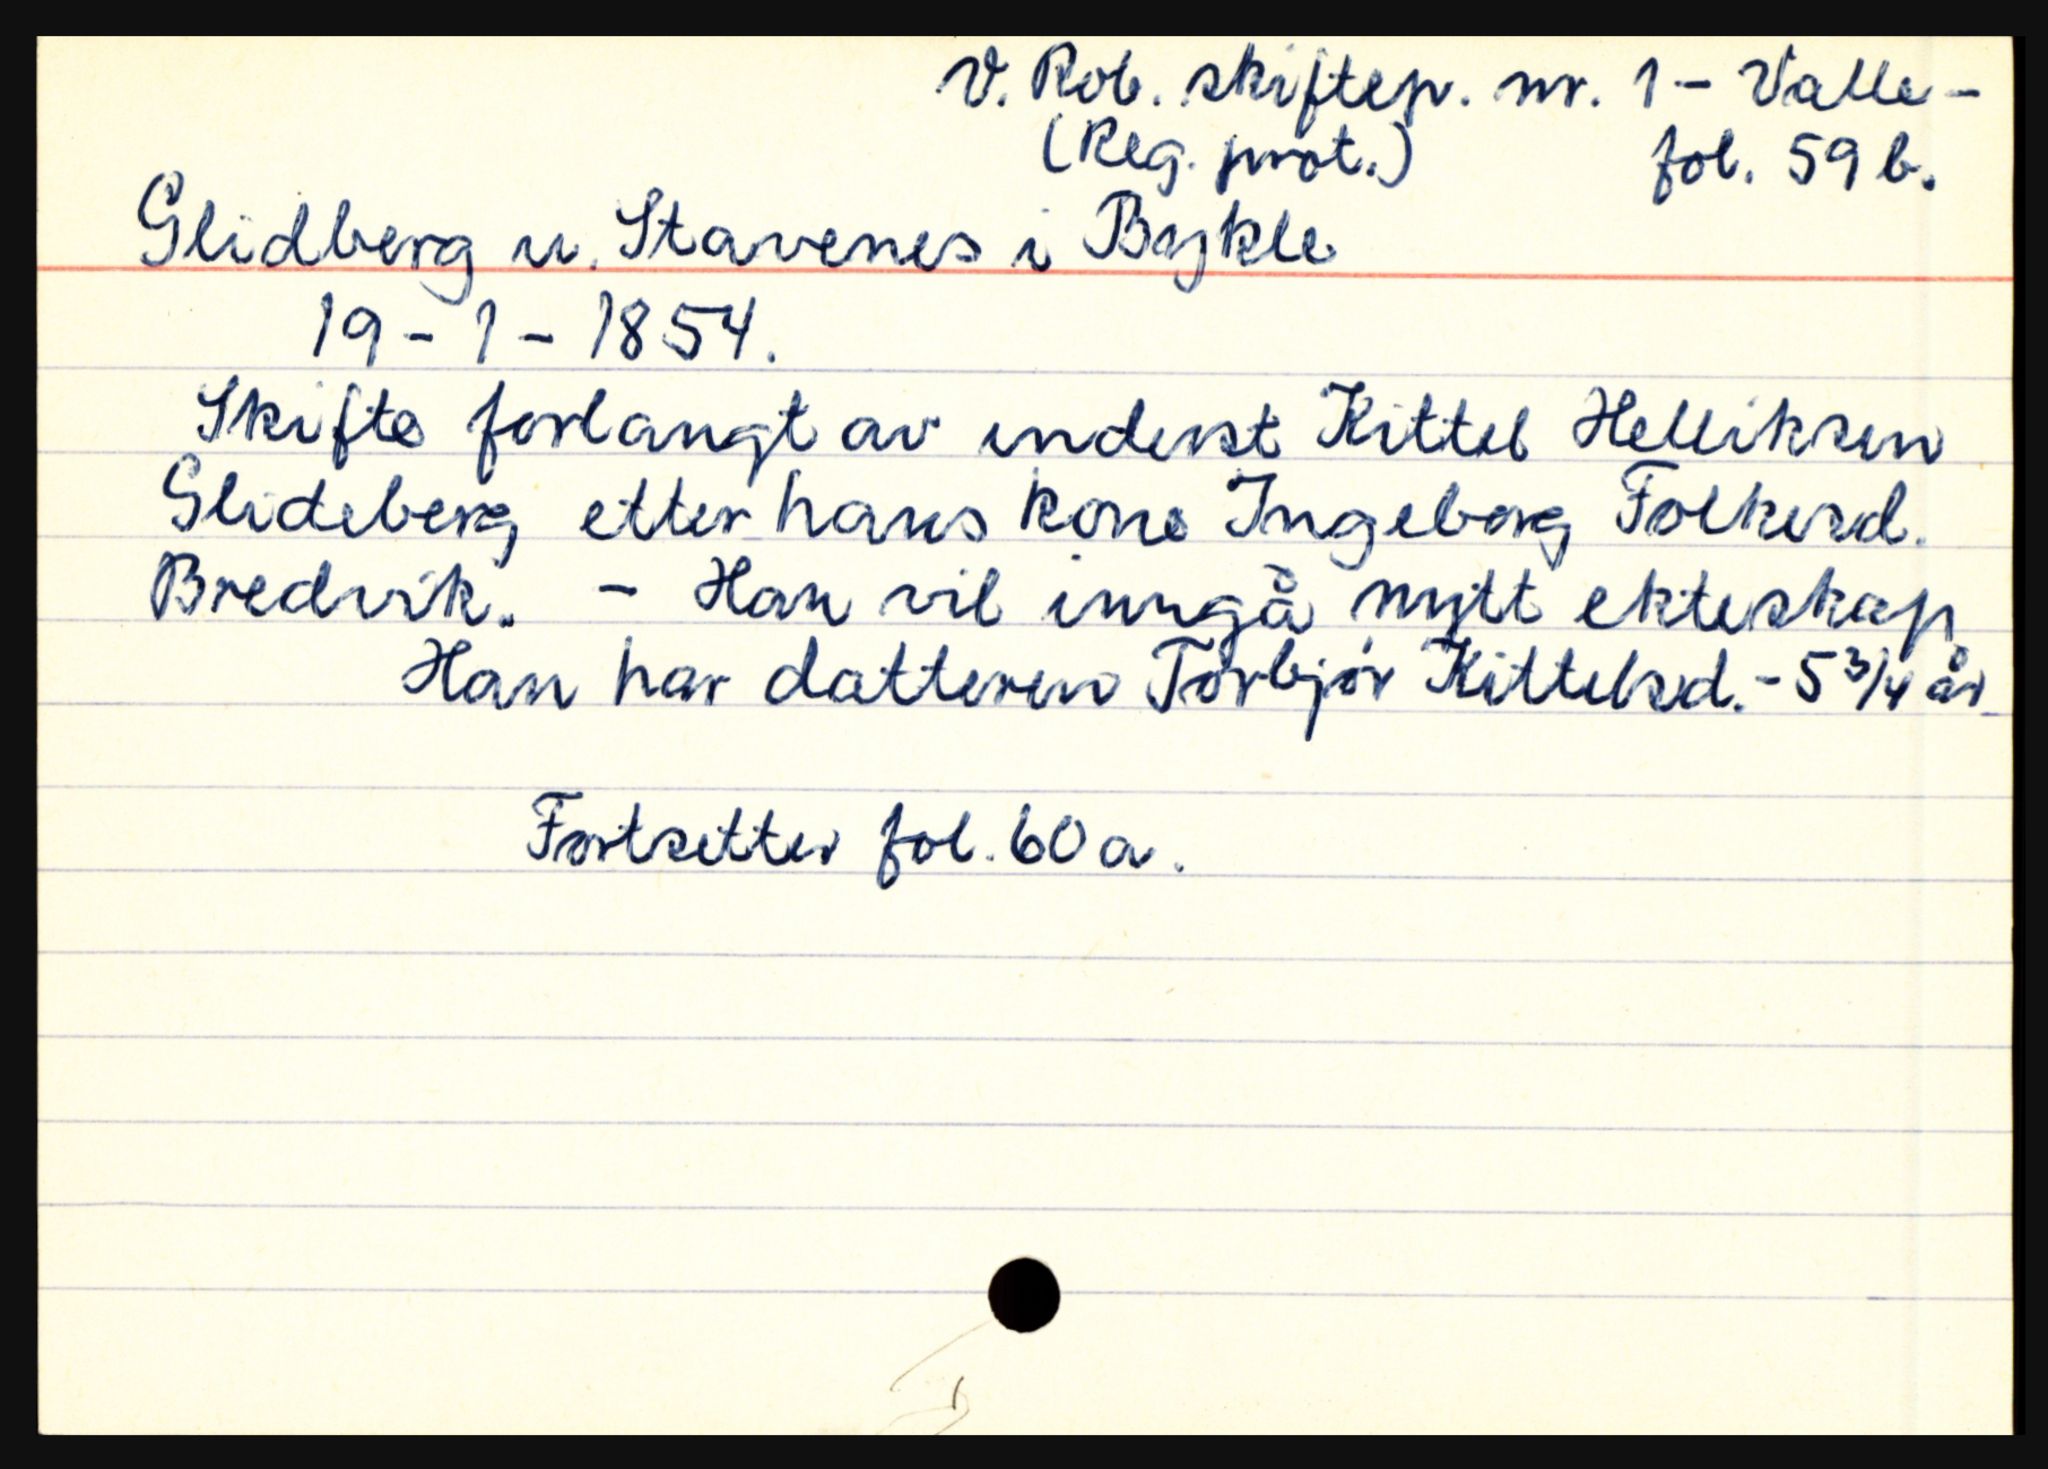 V. Rob. skiftep. nr. 1 - Valle -
(Reg. prot.) fol. 59 b.
Glidberg u. Stavenes i Bykle
19 - 1 - 1854.
Skifte forlangt av inderst Kittel Helliksen
Glideberg etter hans kone Ingeborg Folkesd.
Bredvik. - Han vil inngå nytt ekteskap
Han har datteren Torbjør Kittelsd. - 5 3/4 år
Fortsetter fol. 60 a.